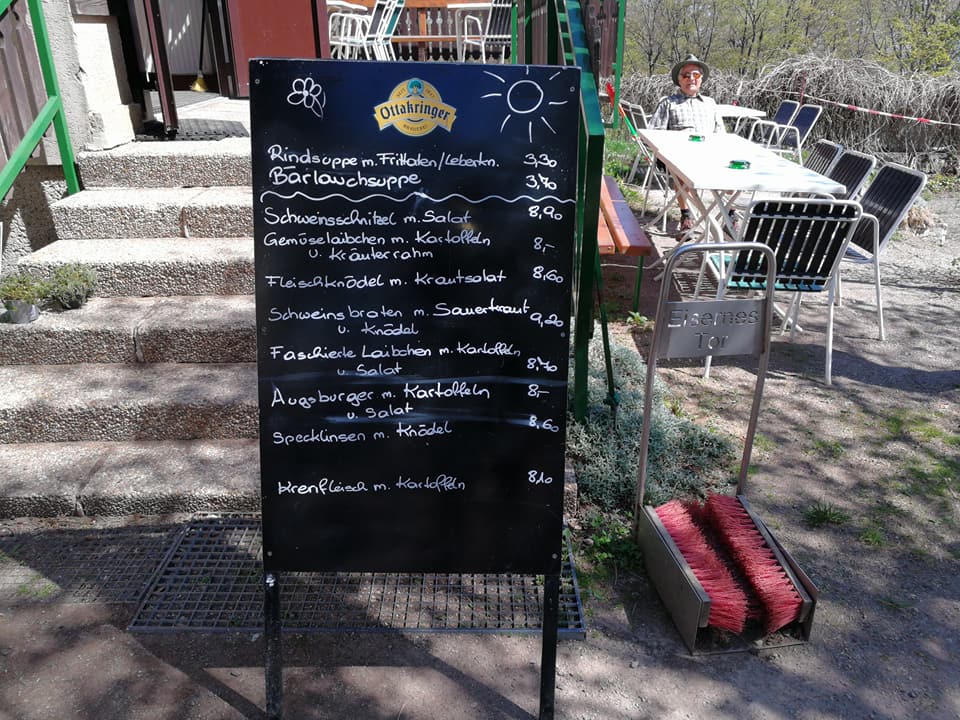 Ottakringer
BRAUEREI
Rindsuppe m. Frittaten/Leberkn. 3,30
Bärlauchsuppe 3,70
Schweinsschnitzel m. Salat 8,90
Gemüselaibchen m. Kartoffeln 8,-
u. Kräuterrahm
Fleischknödel m. Krautsalat 8,60
Schweinsbraten m. Sauerkraut 9,20
u. Knödel
Faschierte Laibchen m. Kartoffeln 8,70
u. Salat
Augsburger m. Kartoffeln 8,-
u. Salat
Specklinsen m. Knödel 8,60
Krenfleisch m. Kartoffeln 8,10
Eisernes
Tor